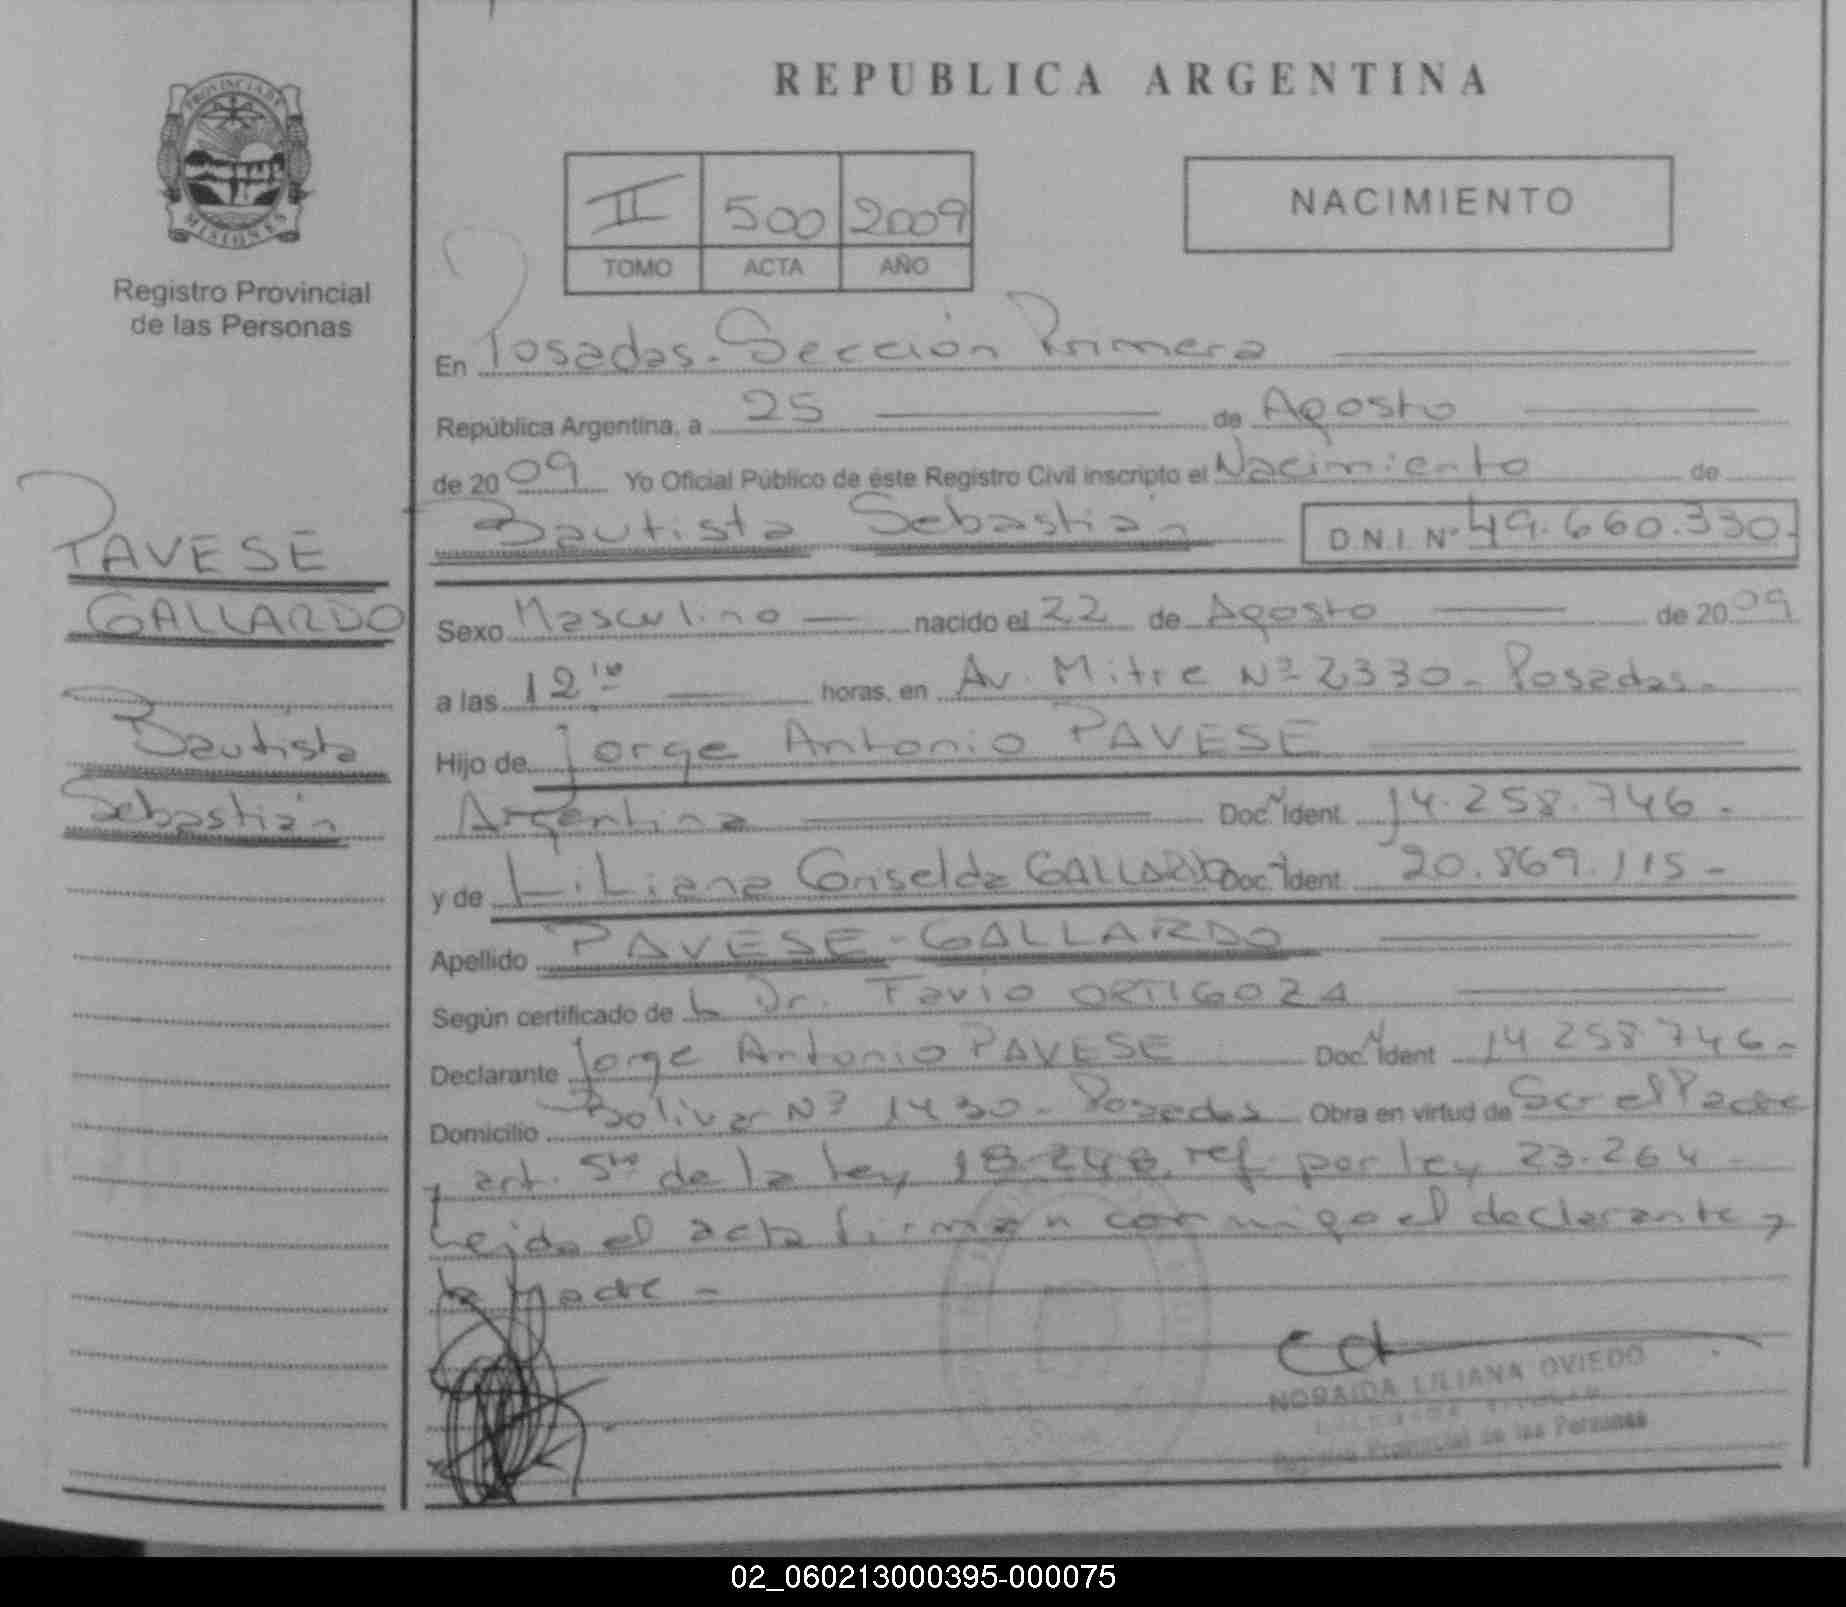 PROVINCIA DE
MISIONES
Registro Provincial
de las Personas
REPUBLICA ARGENTINA
II 500 2009
TOMO ACTA AÑO
NACIMIENTO
En Posadas - Sección Primera
República Argentina, a 25 de Agosto
de 2009 Yo Oficial Público de éste Registro Civil inscripto el Nacimiento de
Bautista Sebastián D.N.I. Nº 49.660.330.-
Sexo Masculino nacido el 22 de Agosto de 2009
a las 12 horas, en Av. Mitre Nº 2330 - Posadas.-
Hijo de Jorge Antonio PAVESE
Argentina Doc. Ident. 14.258.746 -
y de Liliana Griselda GALLARDO Doc. Ident. 20.869.115 -
Apellido PAVESE - GALLARDO
Según certificado de Dr. Favio ORTIGOZA
Declarante Jorge Antonio PAVESE Doc. Ident 14 258 746 -
Domicilio Bolivar Nº 1430 - Posadas Obra en virtud de Ser el Padre
y art. 5to de la ley 18.248 ref. por ley 23.264 -
Leida el acta firman conmigo el declarante y
la Madre -
PAVESE
GALLARDO
Bautista
Sebastián
NORAIDA LILIANA OVIEDO
Registro Provincial de las Personas
02_060213000395-000075